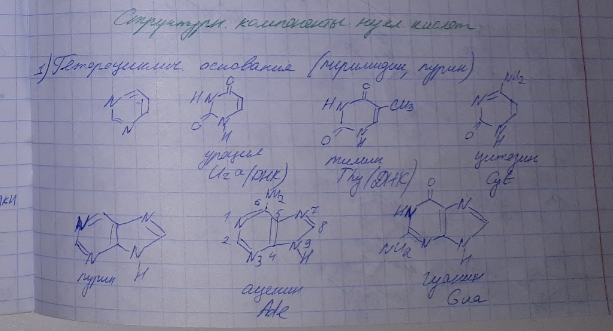 Структурн. компоненты нукл кислот
1) Гетероциклич. основания (пиримидин, пурин)
N
N
O
HN
O
N
H
урацил
Ura (РНК)
O
HN
CH3
O
N
H
тимин
Thy (ДНК)
NH2
N
O
N
H
цитозин
Cyt
N
N
N
N
H
пурин
NH2
6
1 N
5
N 7
8
2
N3
4
N 9
H
аденин
Ade
O
HN
N
NH2
N
N
H
гуанин
Gua